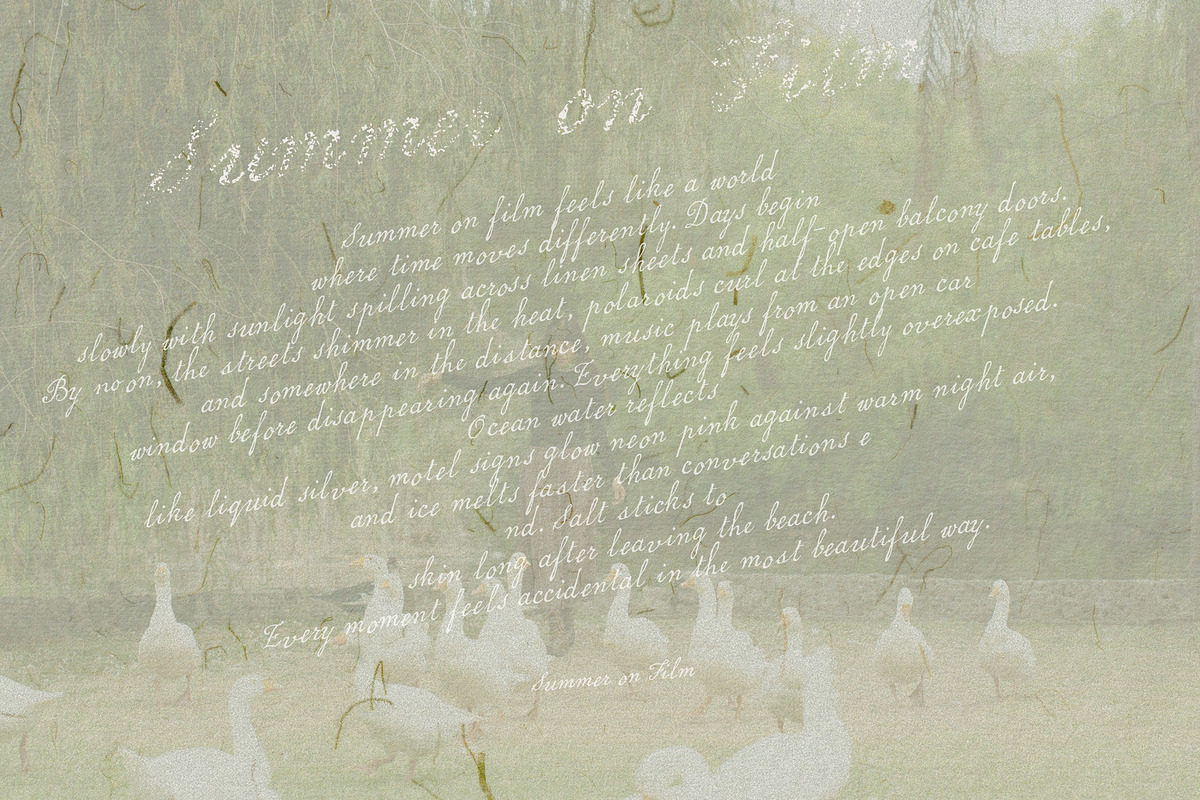 Summer on Film
Summer on film feels like a world
where time moves differently. Days begin
slowly with sunlight spilling across linen sheets and half-open balcony doors.
By noon, the streets shimmer in the heat, polaroids curl at the edges on cafe tables,
and somewhere in the distance, music plays from an open car
window before disappearing again. Everything feels slightly overexposed.
Ocean water reflects
like liquid silver, motel signs glow neon pink against warm night air,
and ice melts faster than conversations e
nd. Salt sticks to
skin long after leaving the beach.
Every moment feels accidental in the most beautiful way.
Summer on Film